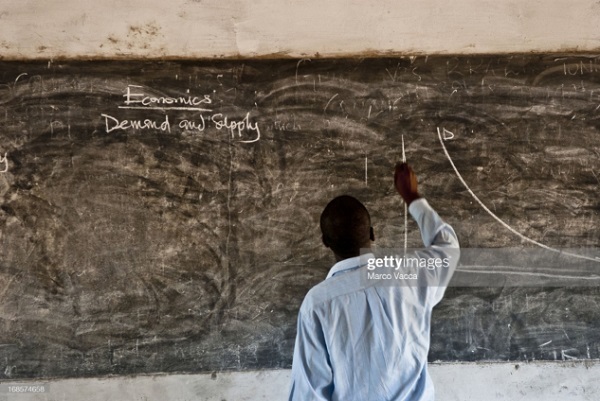 Economics
Demand and Supply
y
D
gettyimages®
Marco Vacca
168574658